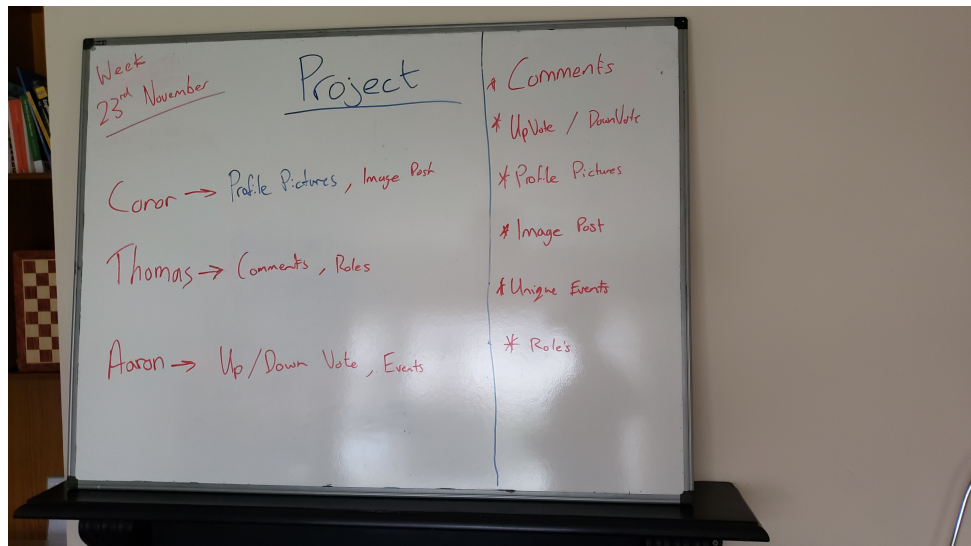 Week
23rd November
Project
Conor → Profile Pictures, Image Post
Thomas → Comments, Roles
Aaron → Up/Down Vote, Events
* Comments
* UpVote / DownVote
* Profile Pictures
* Image Post
* Unique Events
* Role's